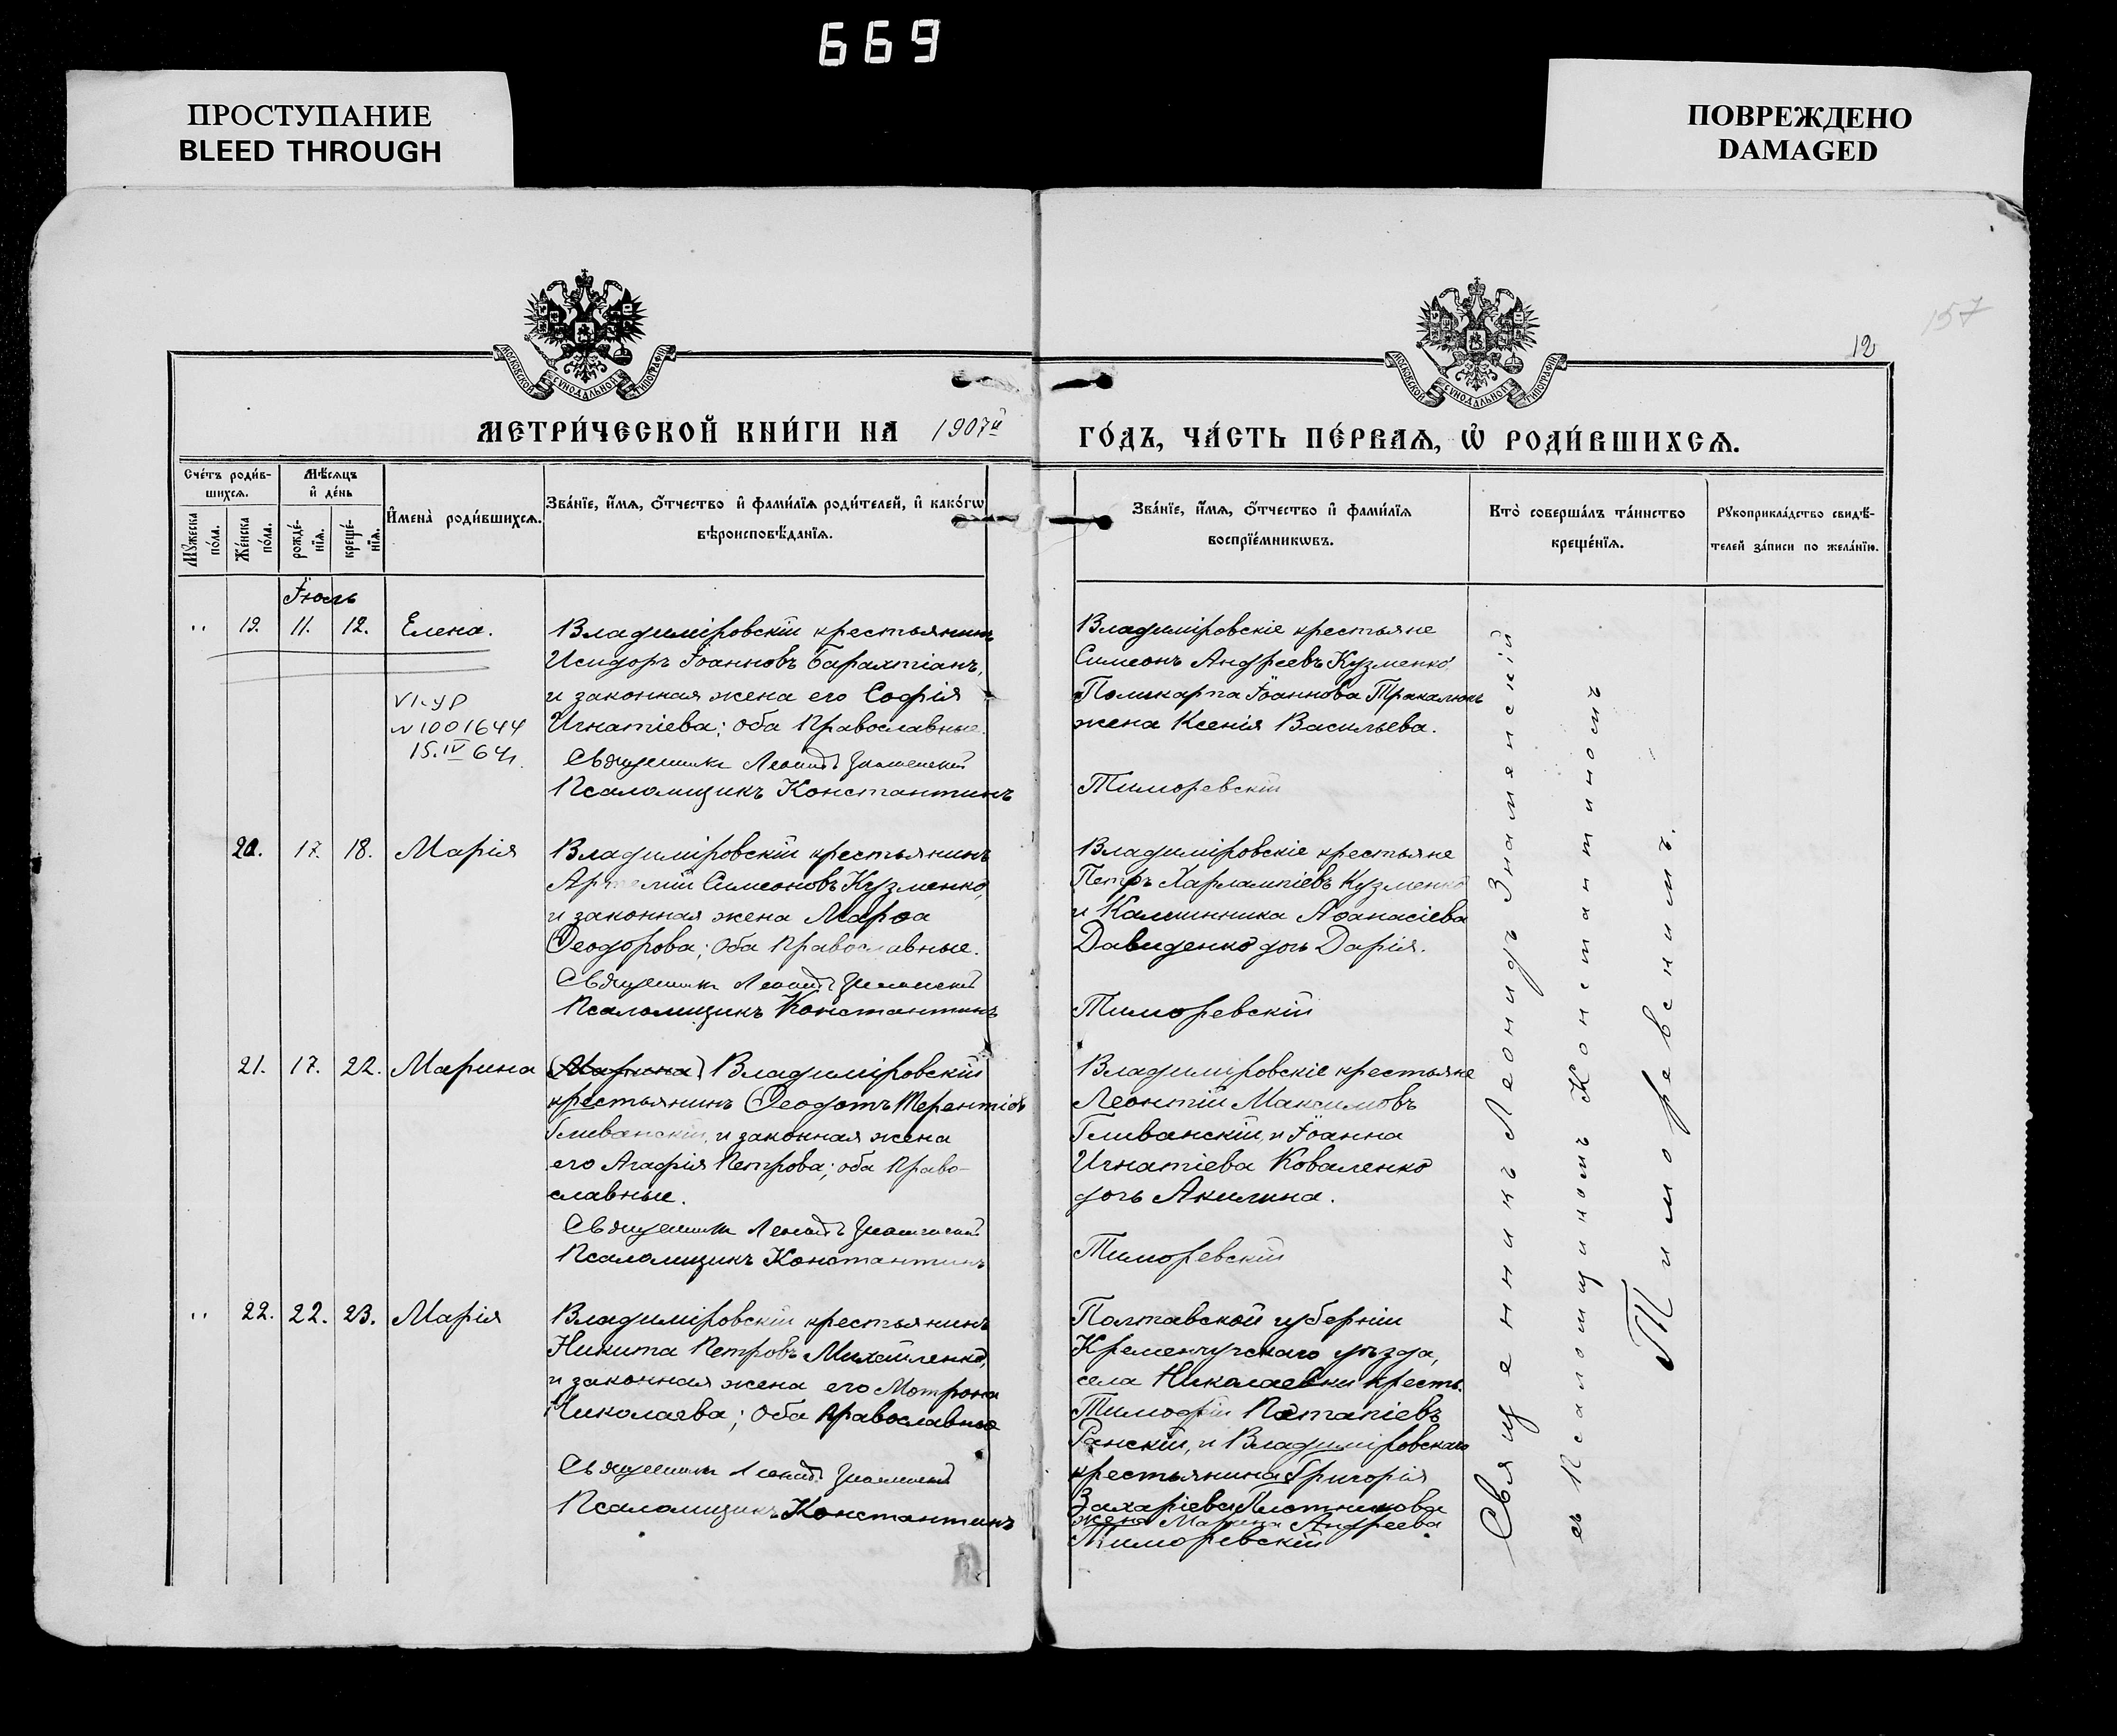 669
ПРОСТУПАНИЕ
BLEED THROUGH
ПОВРЕЖДЕНО
DAMAGED
157
12
МОСКОВСКОЙ СѴНОДАЛЬНОЙ ТИПОГРАФІИ
МОСКОВСКОЙ СѴНОДАЛЬНОЙ ТИПОГРАФІИ
МЕТРИ́ЧЕСКОЙ КНИ́ГИ НА 1907й
ГО́ДЪ, ЧА́СТЬ ПЕ́РВАЯ, Ѽ РОДИ́ВШИХСЯ.
Сче́тъ роди́в-
шихся.
Мꙋжеска по́ла.
Же́нска по́ла.
Мѣ́сяцъ
и҆ де́нь
рожде́-
нїя.
креще́-
нїя.
И҆мена̀ роди́вшихся.
Зва́нїе, и҆́мя, о҆́тчество и҆ фами́лїя роди́телей, и҆ како́гѡ
вѣроисповѣ́данїя.
Зва́нїе, и҆́мя, о҆́тчество и҆ фами́лїя
воспрїе́мникѡвъ.
Кто̀ соверша́лъ та́инство
креще́нїя.
Рꙋкоприкла́дство свидѣ́-
телей за́писи по жела́нїю.
Іюль
" 19. 11. 12. Елена.
Владимiровскiй крестьянинъ
Исидоръ Iоанновъ Барахтianъ,
и законная жена его Софiя
Игнатiева; оба Православные.
Священникъ Леонидъ Знаменскiй
Псаломщикъ Константинъ
N1001644
15.IV 64г.
Владимiровскiе крестьяне
Симеонъ Андреевъ Кузменко,
Поликарпа Iоаннова
жена Ксенiя Васильева.
Тиморевскiй
20. 17. 18. Марiя
Владимiровскiй крестьянинъ
Артемiй Симеоновъ Кузменко,
и законная жена Марѳа
Ѳеодорова; оба Православные.
Священникъ Леонидъ Знаменскiй
Псаломщикъ Константинъ
Владимiровскiе крестьяне
Петръ Харлампiевъ Кузменко
и Калинника Аѳанасiева
Давиденко дочь Дарiя.
Тиморевскiй
21. 17. 22. Марина
(Марина) Владимiровскiй
крестьянинъ Ѳеодотъ Терентiевъ
Гливанскiй, и законная жена
его Агафiя Петрова; оба Право-
славные.
Священникъ Леонидъ Знаменскiй
Псаломщикъ Константинъ
Владимiровскiе крестьяне
Леонтiй Максимовъ
Гливанскiй, и Iоанна
Игнатiева Коваленко
дочь Акилина.
Тиморевскiй
" 22. 22. 23. Марiя
Владимiровскiй крестьянинъ
Никита Петровъ Михайленко,
и законная жена его Мотрона
Николаева; Оба Православные
Священникъ Леонидъ Знаменскiй
Псаломщикъ Константинъ
Полтавской губернiи
Кременчугскаго уѣзда,
села Николаевки кресть.
Тимофей Потапiевъ
Ранскiй, и Владимiровскаго
крестьянина Григорiя
Захарiева Плотникова
жена Марина Андреева
Тиморевскiй
Священникъ Леонидъ Знаменскiй
съ Псаломщикомъ Константиномъ
Тиморевскимъ.